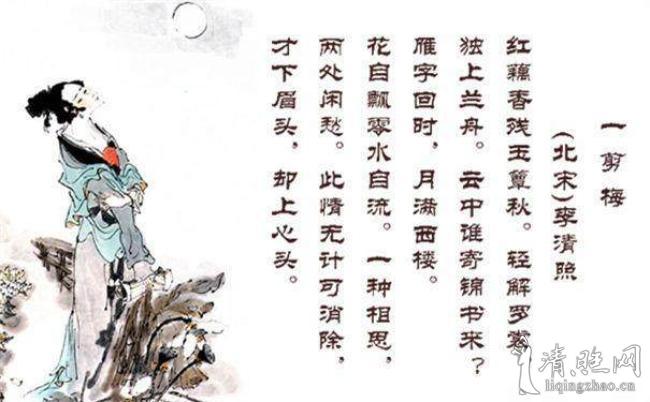 一剪梅
(北宋)李清照
红藕香残玉簟秋。轻解罗裳,
独上兰舟。云中谁寄锦书来?
雁字回时,月满西楼。
花自飘零水自流。一种相思,
两处闲愁。此情无计可消除,
才下眉头,却上心头。
清照网
liqingzhao.cn